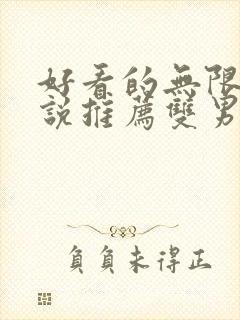 好看的無限
說推薦雙男
負負未得正